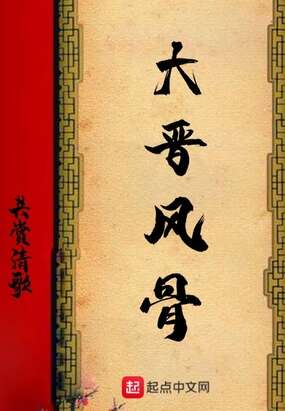 大晋风骨
共赏清歌
起点中文网